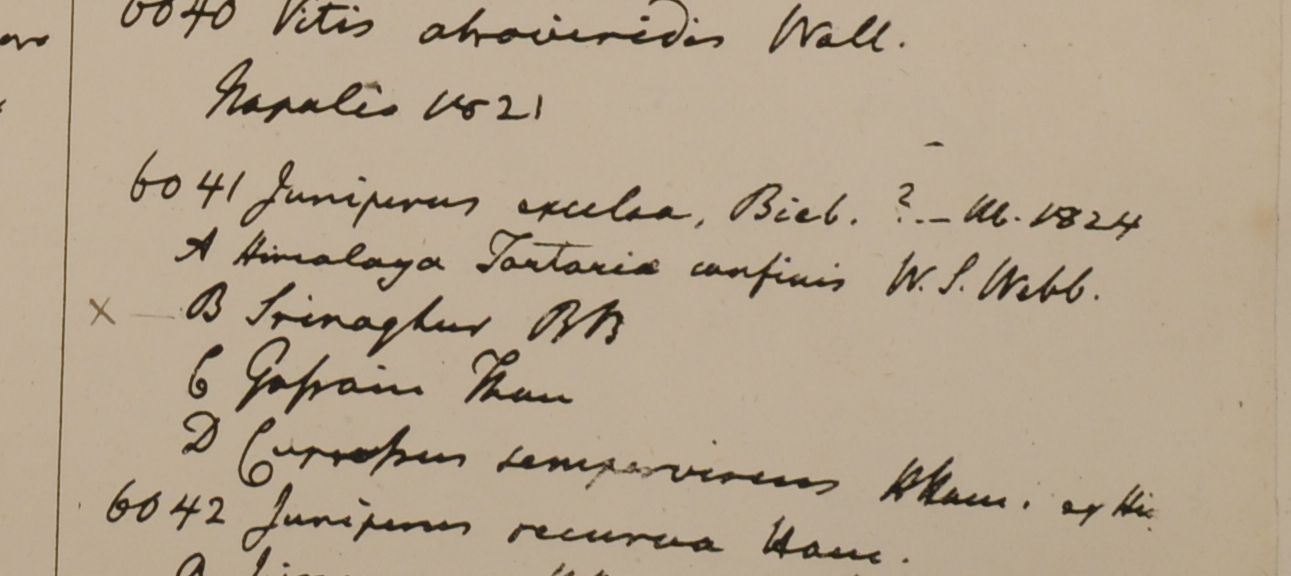 6040 Vitis atroviridis Wall.
Napalis 1821
6041 Juniperus excelsa, Bieb. ? - 1824
A Himalaya Tartariæ confinis W. S. Webb.
X - B Srinaghur RB
C Goſsain Than
D Cupreſsus sempervirens HHam.
6042 Juniperus recurva Ham.